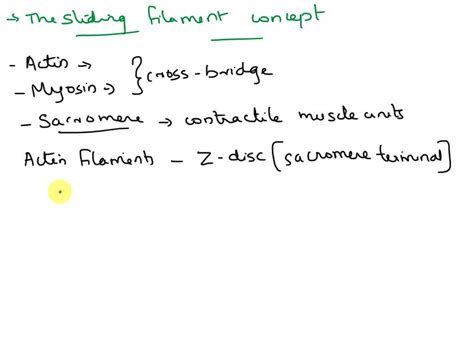 → The sliding filament concept
- Actin →
- Myosin → } cross-bridge
- Sacromere → contractile muscle units
Actin Filaments - Z-disc [sacromere terminal]